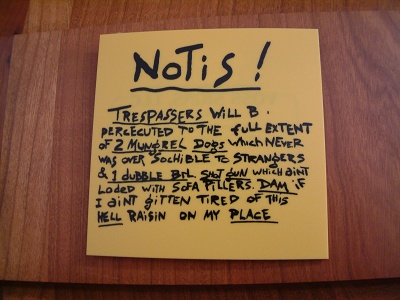 NOTIS!
TRESPASSERS WILL B.
PERCECUTED TO THE FULL EXTENT
OF 2 MUNGREL DOGS WHICH NEVER
WAS OVER SOCHIBLE TO STRANGERS
& 1 DUBBLE BRL. SHOT GUN WHICH AINT
LODED WITH SOFA PILLERS. DAM iF
I AINT GITTEN TIRED OF THIS
HELL RAISIN ON MY PLACE